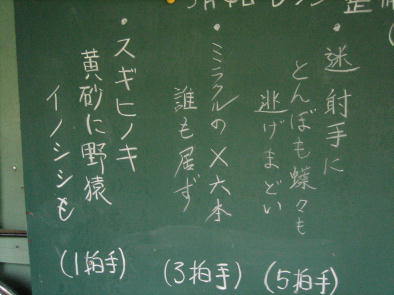 ・迷射手に
とんぼも蝶々も
逃げまどい
(5拍手)
・ミラクルの×六本
誰も居ず
(3拍手)
・スギヒノキ
黄砂に野猿
イノシシも
(1拍手)